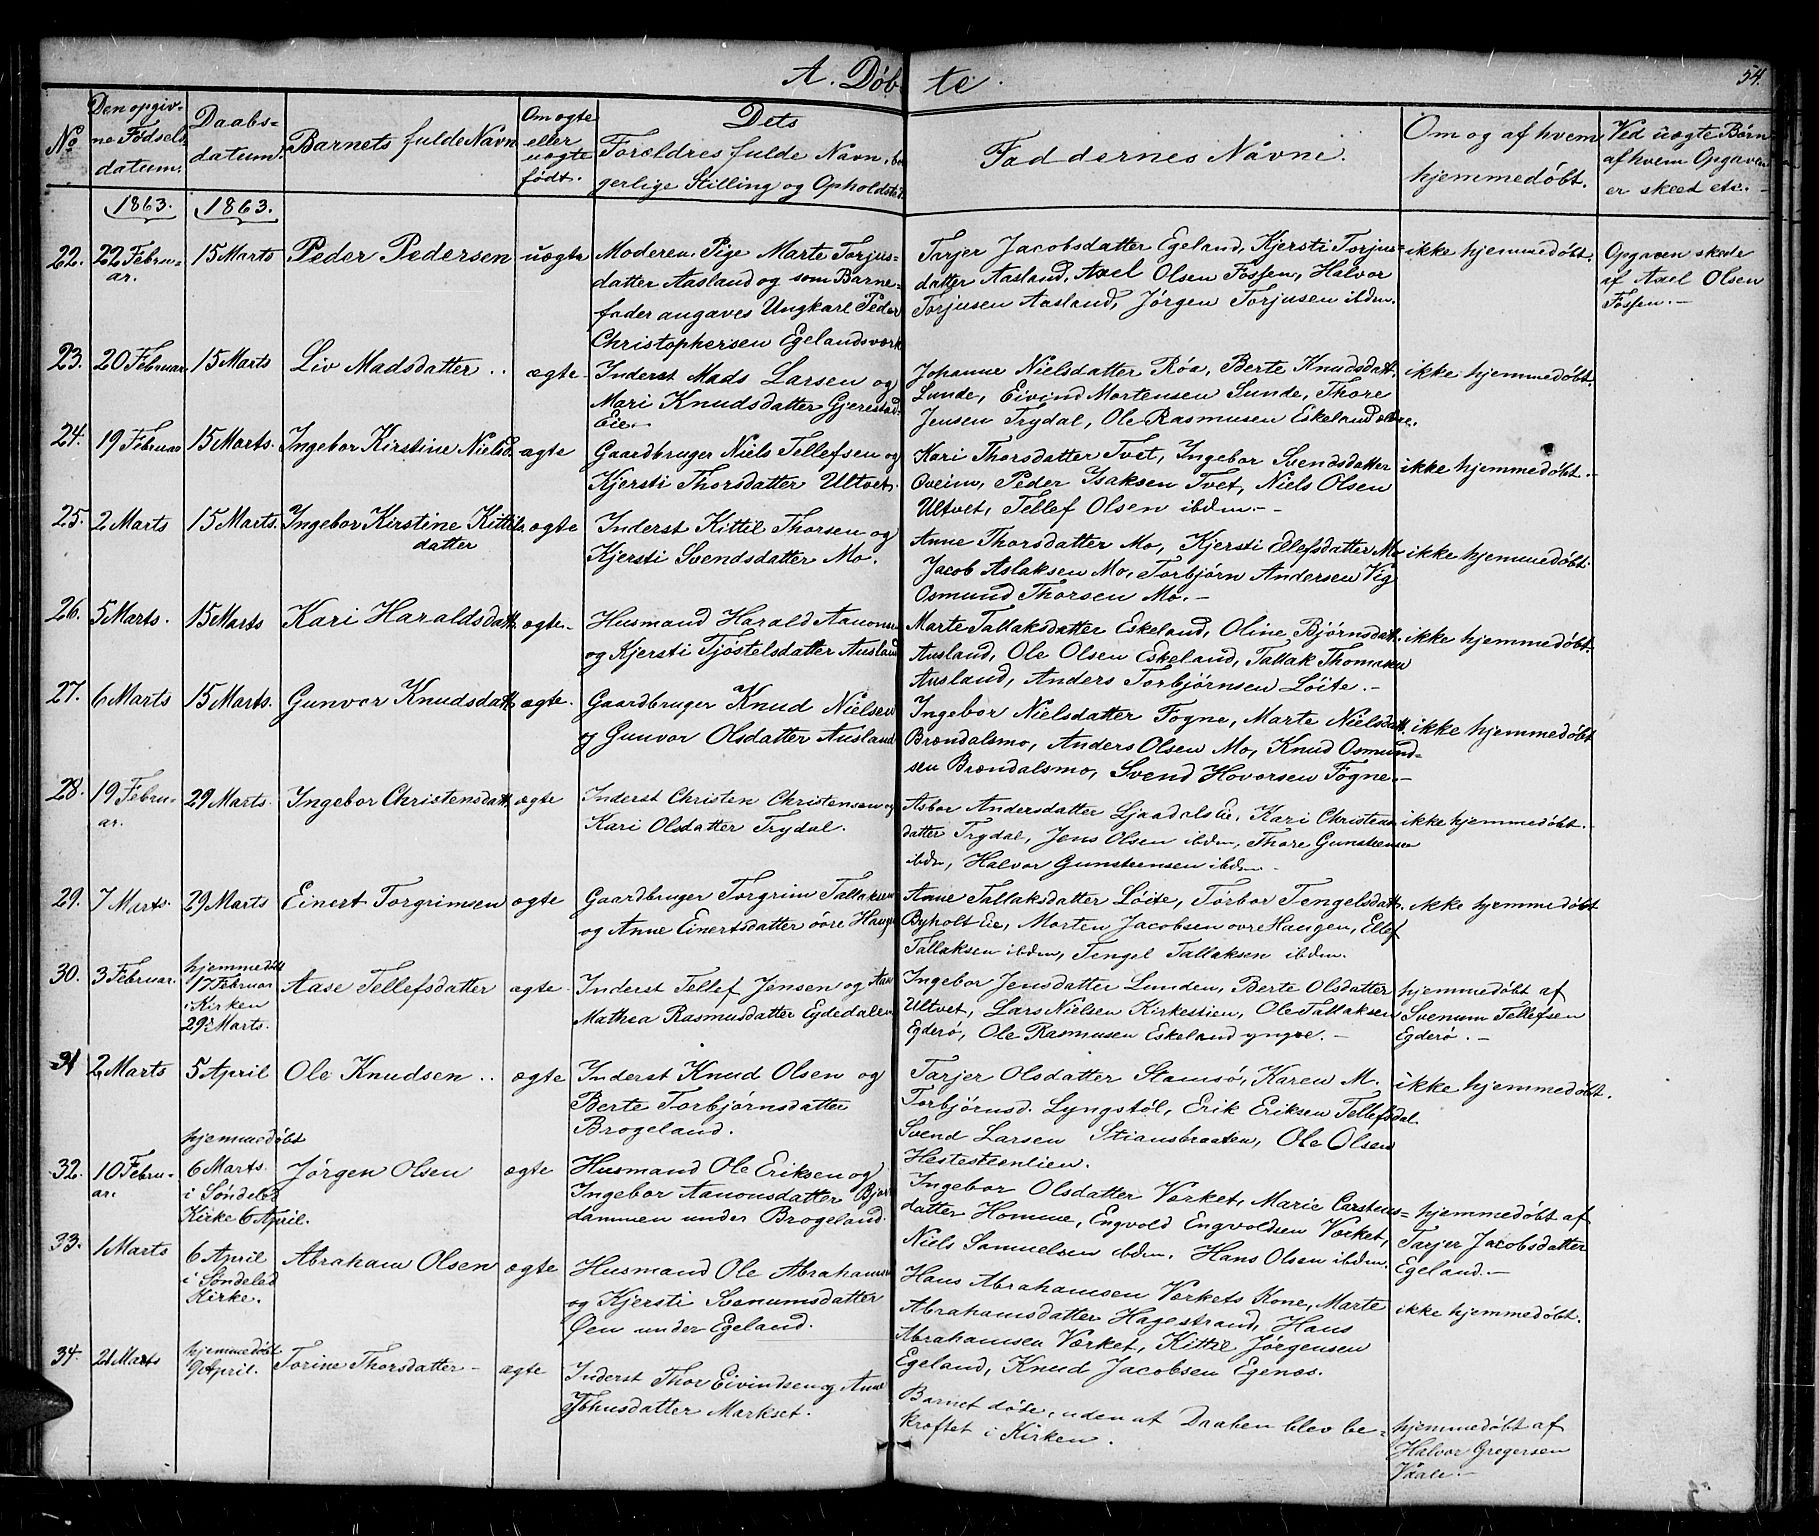 A. Døbte.
54.
No
Den opgiv-
ne Fødsels
datum.
Daabs-
datum.
Barnets fulde Navn
Om ægte
eller
uægte
født.
Dets
Forældres fulde Navn, bor
gerlige Stilling og Opholdsted.
Faddernes Navne.
Om og af hvem
hjemmedøbt.
Ved uægte Børn
af hvem Opgaven
er skeet etc. -
1863.
1863.
22.
22 Febru-
ar.
15 Marts
Peder Pedersen
uægte
Moderen Pige Marte Torjus-
datter Aasland og som Barne-
fader angaves Ungkarl Peder
Christophersen Egelandsværk
Tarjer Jacobsdatter Egeland, Kjersti Torjus-
datter Aasland, Axel Olsen Fossen, Halvor
Torjusen Aasland, Jørgen Torjusen ibdm.
ikke hjemmedøbt.
Opgaven skede
af Axel Olsen
Fossen. -
23.
20 Februar
15 Marts
Liv Madsdatter ..
ægte
Inderst Mads Larsen og
Mari Knudsdatter Gjerestad
Eie.
Johanne Nielsdatter Røa, Berte Knudsdatt.
Lunde, Eivind Mortensen Lunde, Thore
Jensen Trydal, Ole Rasmusen Eskeland ældre.
ikke hjemmedøbt.
24.
19 Februar
15 Marts.
Ingebor Kirstine Nielsd.
ægte
Gaardbruger Niels Tellefsen og
Kjersti Thorsdatter Ultvet.
Kari Thorsdatter Tvet, Ingebor Svendsdatter
Oveim, Peder Isaksen Tvet, Niels Olsen
Ultvet, Tellef Olsen ibdm. -
ikke hjemmedøbt. -
25.
2 Marts
15 Marts.
Ingebor Kirstine Kittils
datter
ægte
Inderst Kittil Thorsen og
Kjersti Svendsdatter Mo.
Anne Thorsdatter Mo, Kjersti Ellefsdatter Mo
Jacob Aslaksen Mo, Torbjørn Andersen Vig
Osmund Thorsen Mo. -
ikke hjemmedøbt.
26.
5 Marts.
15 Marts
Kari Haraldsdatt.
ægte.
Husmand Harald Aanonsen
og Kjersti Tjøstelsdatter Ausland
Marte Tallaksdatter Eskeland, Oline Bjørnsdatt.
Ausland, Ole Olsen Eskeland, Tallak Thomasen
Ausland, Anders Torbjørnsen Løite. -
ikke hjemmedøbt.
27.
6 Marts
15 Marts.
Gunvor Knudsdatt.
ægte.
Gaardbruger Knud Nielsen
og Gunvor Olsdatter Ausland
Ingebor Nielsdatter Fogne, Marte Nielsdatt.
Brændalsmo, Anders Olsen Mo, Knud Osmund-
sen Brændalsmo, Svend Hovorsen Fogne. -
ikke hjemmedøbt
28.
19 Febru-
ar.
29 Marts.
Ingebor Christensdatt.
ægte
Inderst Christen Christensen og
Kari Olsdatter Trydal.
Asbor Andersdatter Ljaadals Eie, Kari Christens
datter Trydal, Jens Olsen ibdm, Thore Gunsteensen
ibdm, Halvor Gunsteensen ibdm.
ikke hjemmedøbt. -
29.
7 Marts.
29 Marts
Einert Torgrimsen
ægte
Gaardbruger Torgrim Tallaksen
og Anne Einertsdatter övre Haugen
Anne Tallaksdatter Löite, Torbor Tengelsdatt.
Byholt Eie, Morten Jacobsen ovre Haugen, Ellef
Tallaksen ibdm, Tengel Tallaksen ibdm.
ikke hjemmedøbt
30.
3 Februar.
hjemmedöbt
17 Februar
i Kirken
29 Marts.
Aase Tellefsdatter
ægte
Inderst Tellef Jensen og Aase
Mathea Rasmusdatter Egdedalen
Ingebor Jensdatter Lunden, Berte Olsdatter
Ultvet, Lars Nielsen Kirkestien, Ole Tallaksen
Egderø, Ole Rasmusen Eskeland yngre. -
hjemmedøbt af
Svenum Tellefsen
Egderø. -
31
2 Marts
5 April
Ole Knudsen ..
ægte
Inderst Knud Olsen og
Berte Torbjørnsdatter
Brogeland.
Tarjer Olsdatter Stamsö, Karen M.
Torbjørnsd. Lyngstöl, Erik Eriksen Tellefsdal
Svend Larsen Stiansbraaten, Ole Olsen
Hestesteenlien.
ikke hjemmedøbt.
32.
10 Febru-
ar.
hjemmedøbt
6 Marts.
i Søndeled
Kirke 6 April.
Jørgen Olsen
ægte
Husmand Ole Eriksen og
Ingebor Aanonsdatter Bjor
dammen under Brogeland.
Ingebor Olsdatter Værket, Marie Carstens-
datter Homme, Engvold Engvoldsen Værket,
Niels Samuelsen ibdm. Hans Olsen ibdm.
hjemmedøbt af
Tarjer Jacobsdatter
Egeland. -
33.
1 Marts
6 April
i Søndeled
Kirke.
Abraham Olsen
ægte
Husmand Ole Abrahamsen
og Kjersti Svenumsdatter
Øen under Egeland.
Hans Abrahamsen Værkets Kone, Marte
Abrahamsdatter Hagestrand, Hans
Abrahamsen Værket, Kittil Jørgensen
Egeland, Knud Jacobsen Egenæs.
ikke hjemmedøbt.
34.
21 Marts
hjemmedøbt
9 April.
Torine Thorsdatter -
ægte
Inderst Thor Eivindsen og Anne
Johusdatter Markset.
Barnet døde, uden at Daaben blev be-
kræftet i Kirken.
hjemmedøbt af
Halvor Gregersen
Vaale. -